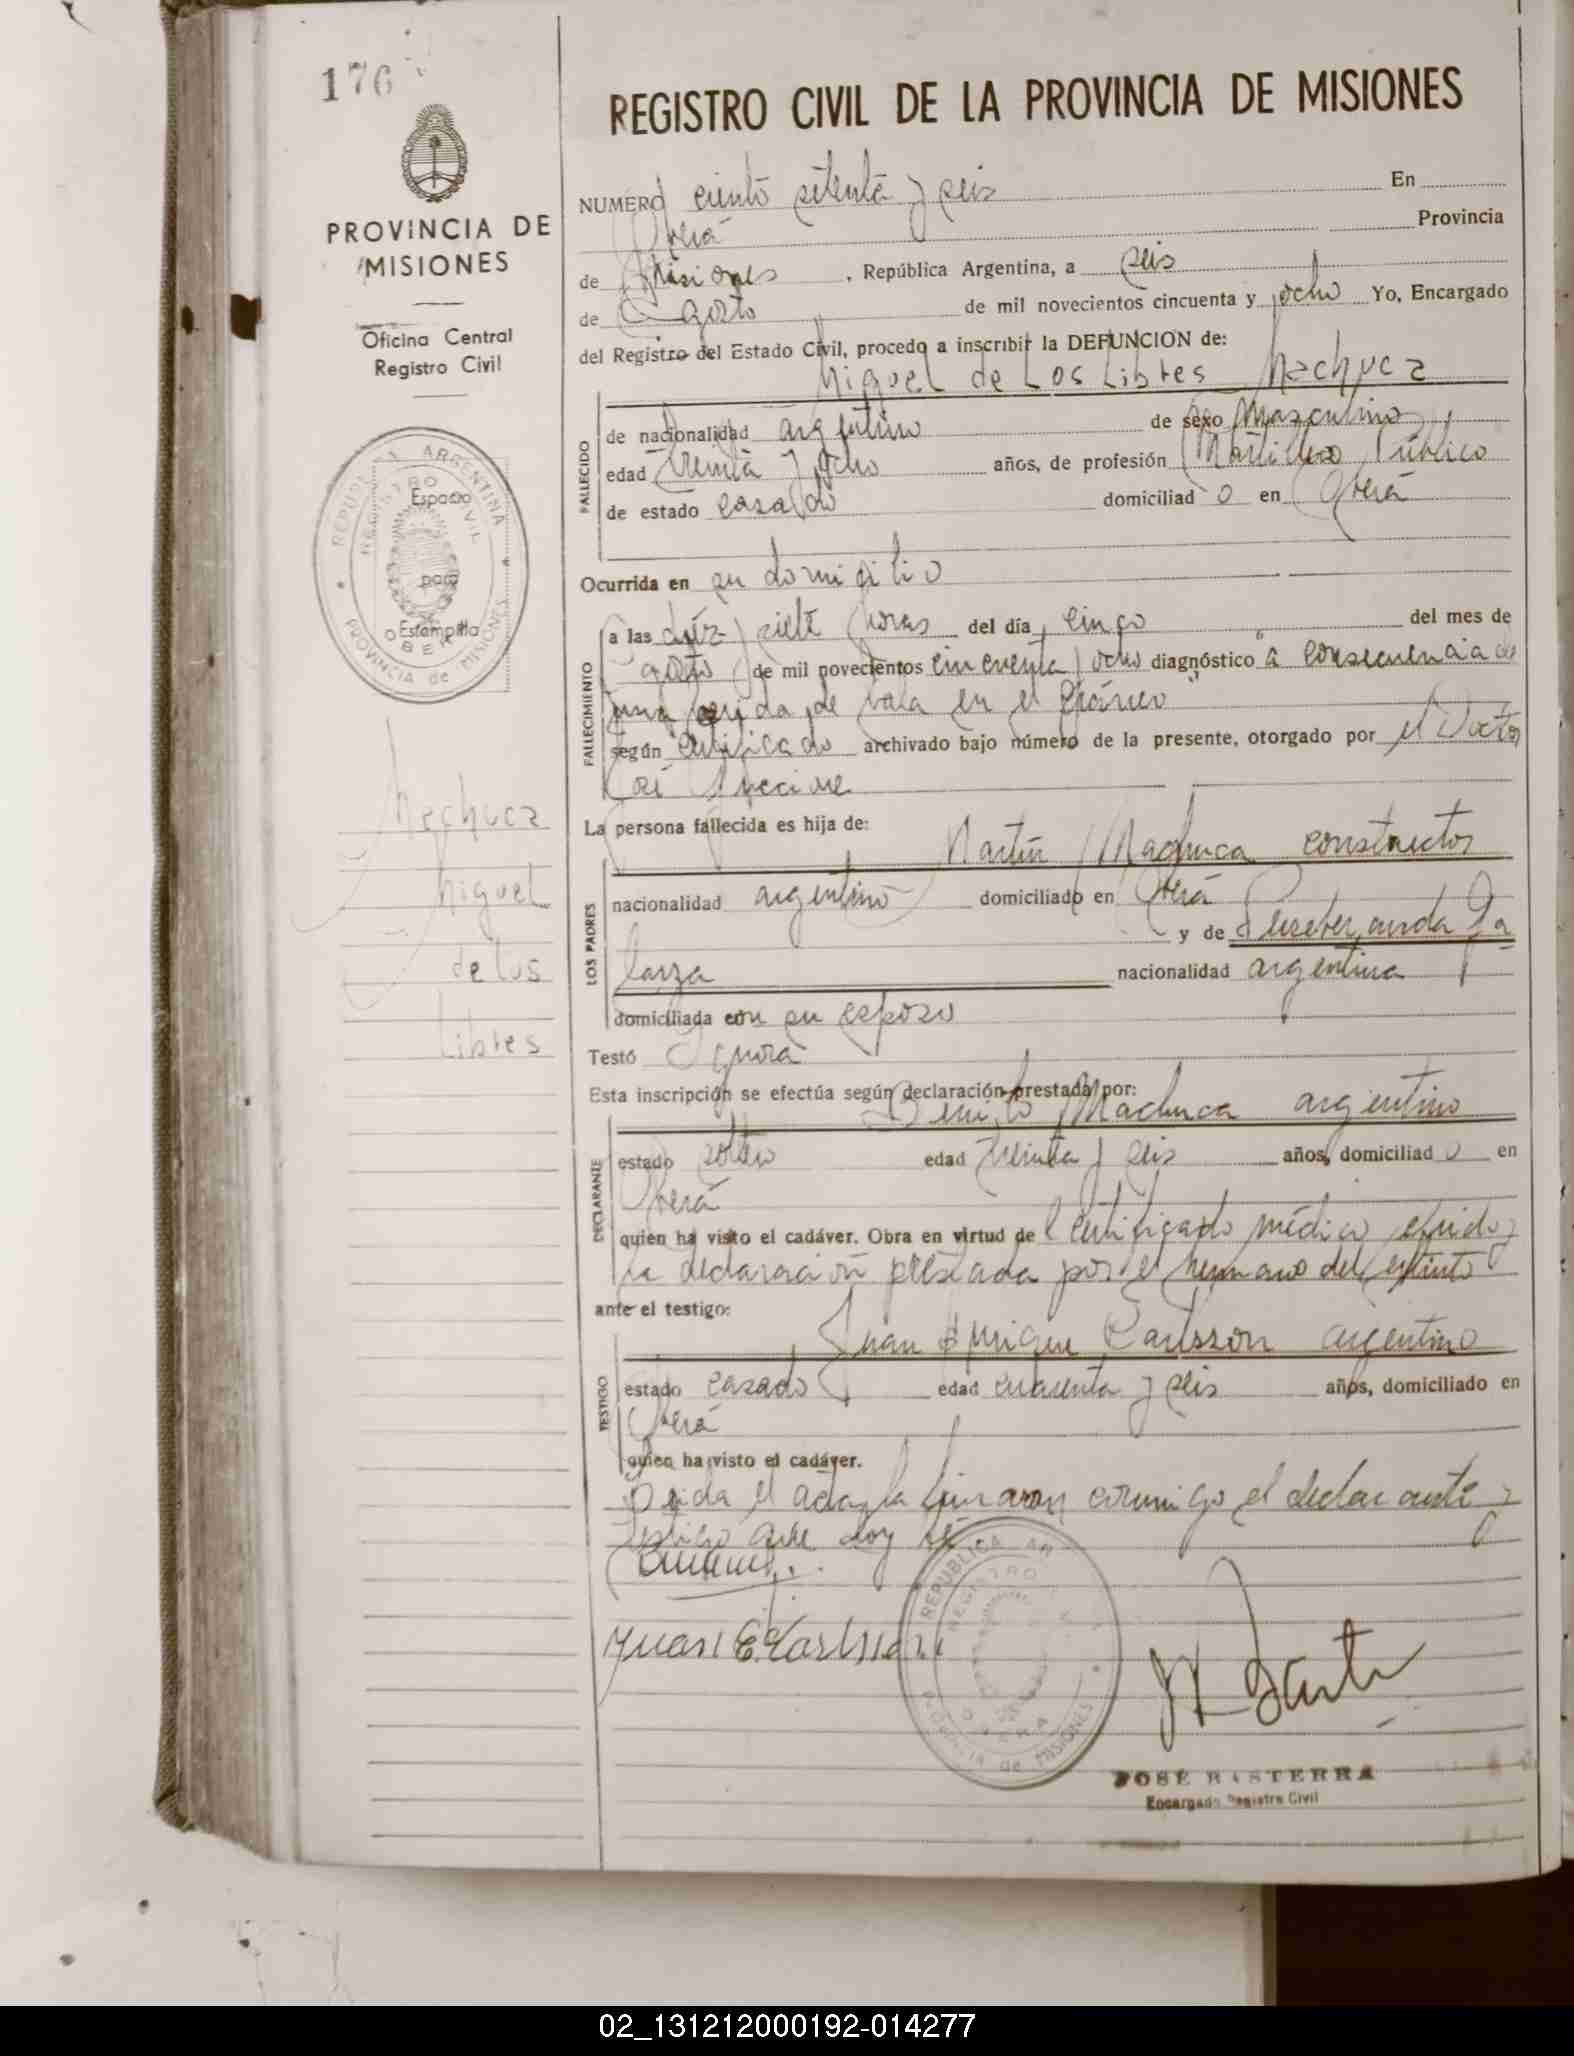 176
PROVINCIA DE
MISIONES
Oficina Central
Registro Civil
REPUBLICA ARGENTINA
REGISTRO CIVIL
Espacio
para
Estampilla
OBERA
PROVINCIA de MISIONES
Machuca
Miguel
de los
Libres
REGISTRO CIVIL DE LA PROVINCIA DE MISIONES
NUMERO ciento setenta y seis En
Oberá Provincia
de Misiones , República Argentina, a seis
de Agosto de mil novecientos cincuenta y ocho Yo, Encargado
del Registro del Estado Civil, procedo a inscribir la DEFUNCION de:
Miguel de Los Libres Machuca
FALLECIDO
de nacionalidad argentino de sexo Masculino
edad treinta y ocho años, de profesión Martillero Público
de estado casado domiciliad o en Oberá
Ocurrida en su domicilio
FALLECIMIENTO
a las diez y siete horas del día cinco del mes de
agosto de mil novecientos cincuenta y ocho diagnóstico "a consecuencia de
una herida de bala en el cráneo"
según certificado archivado bajo número de la presente, otorgado por el Doctor
José
La persona fallecida es hija de:
Martín Machuca constructor
LOS PADRES
nacionalidad argentino domiciliado en Oberá
y de
nacionalidad argentina
domiciliada con su esposo
Testó Ignora
Esta inscripción se efectúa según declaración prestada por:
Machuca argentino
DECLARANTE
estado soltero edad treinta y seis años, domiciliad o en
Oberá
quien ha visto el cadáver. Obra en virtud de certificado médico referido y
la declaración prestada por el hermano del extinto
ante el testigo:
Juan Enrique Carlsson argentino
TESTIGO
estado casado edad cuarenta y seis años, domiciliado en
Oberá
quien ha visto el cadáver.
Leida el acta, la firmaron conmigo el declarante y
testigo que doy fé
Juan E. Carlsson
REPUBLICA AR
REGISTRO
OBERA
PROVINCIA de MISIONES
JOSE BASTERRA
Encargado Registro Civil
02_131212000192-014277